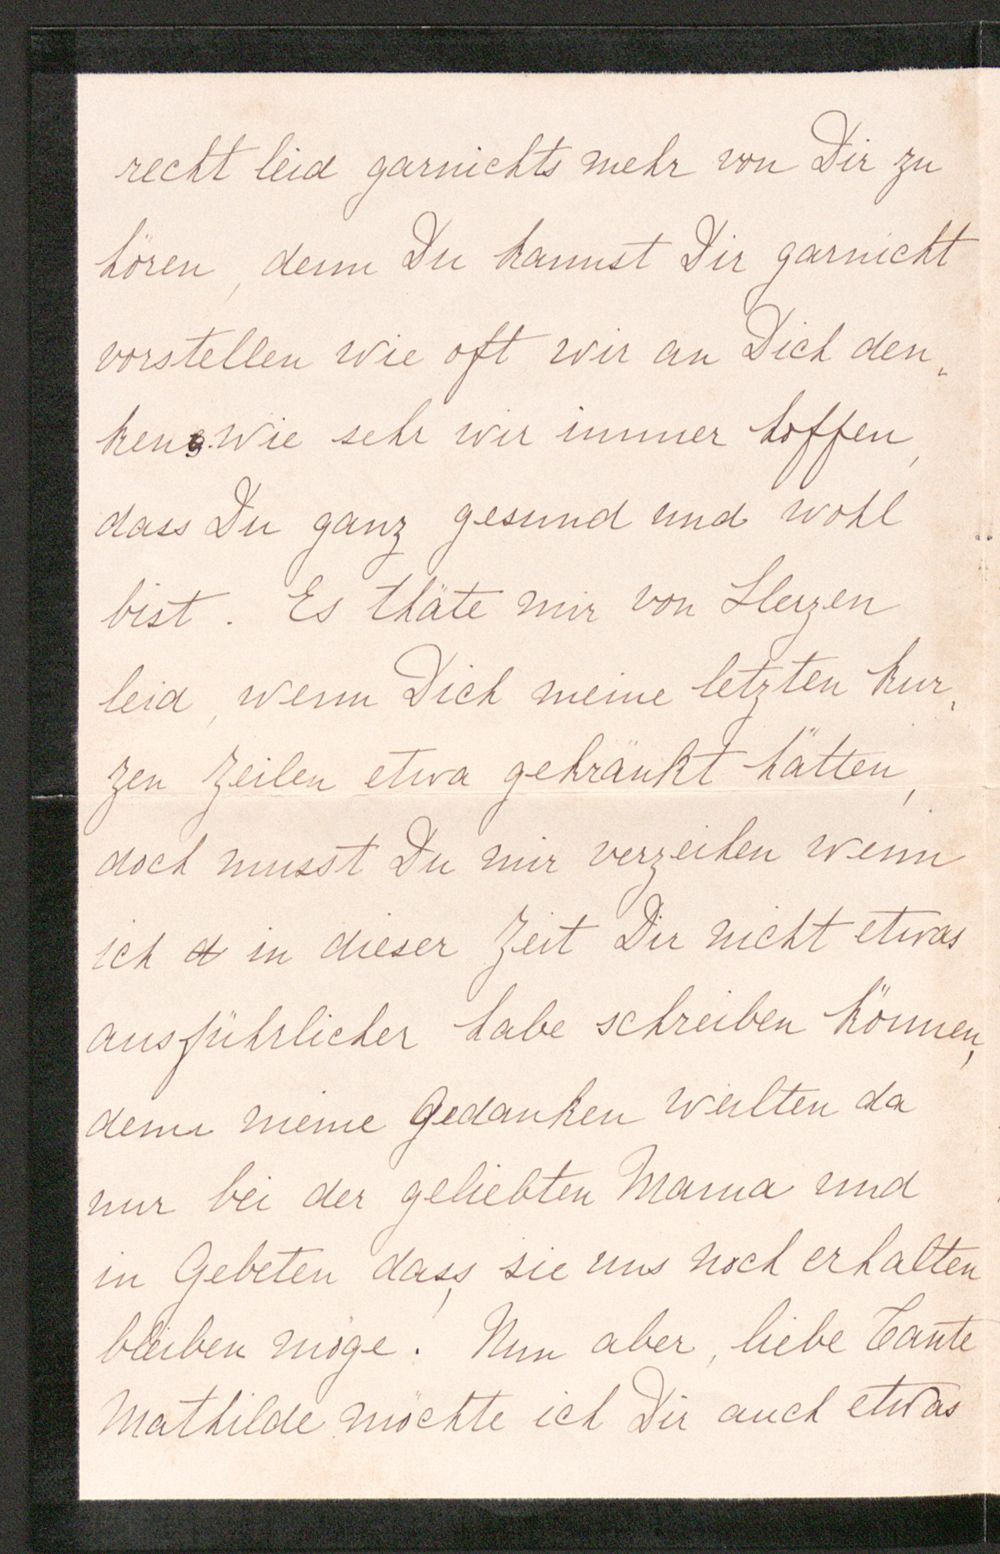 recht leid garnichts mehr von Dir zu
hören, denn Du kannst Dir garnicht
vorstellen wie oft wir an Dich den„
ken wie sehr wir immer hoffen,
dass Du ganz gesund und wohl
bist. Es thäte mir von Herzen
leid, wenn Dich meine letzten kur„
zen Zeilen etwa gekränkt hätten,
doch musst Du mir verzeihen wenn
ich in dieser Zeit Dir nicht etwas
ausführlicher habe schreiben können,
denn meine Gedanken weilten da
nur bei der geliebten Mama und
in Gebeten dass, sie uns noch erhalten
bleiben möge! Nun aber, liebe Tante
Mathilde möchte ich Dir auch etwas